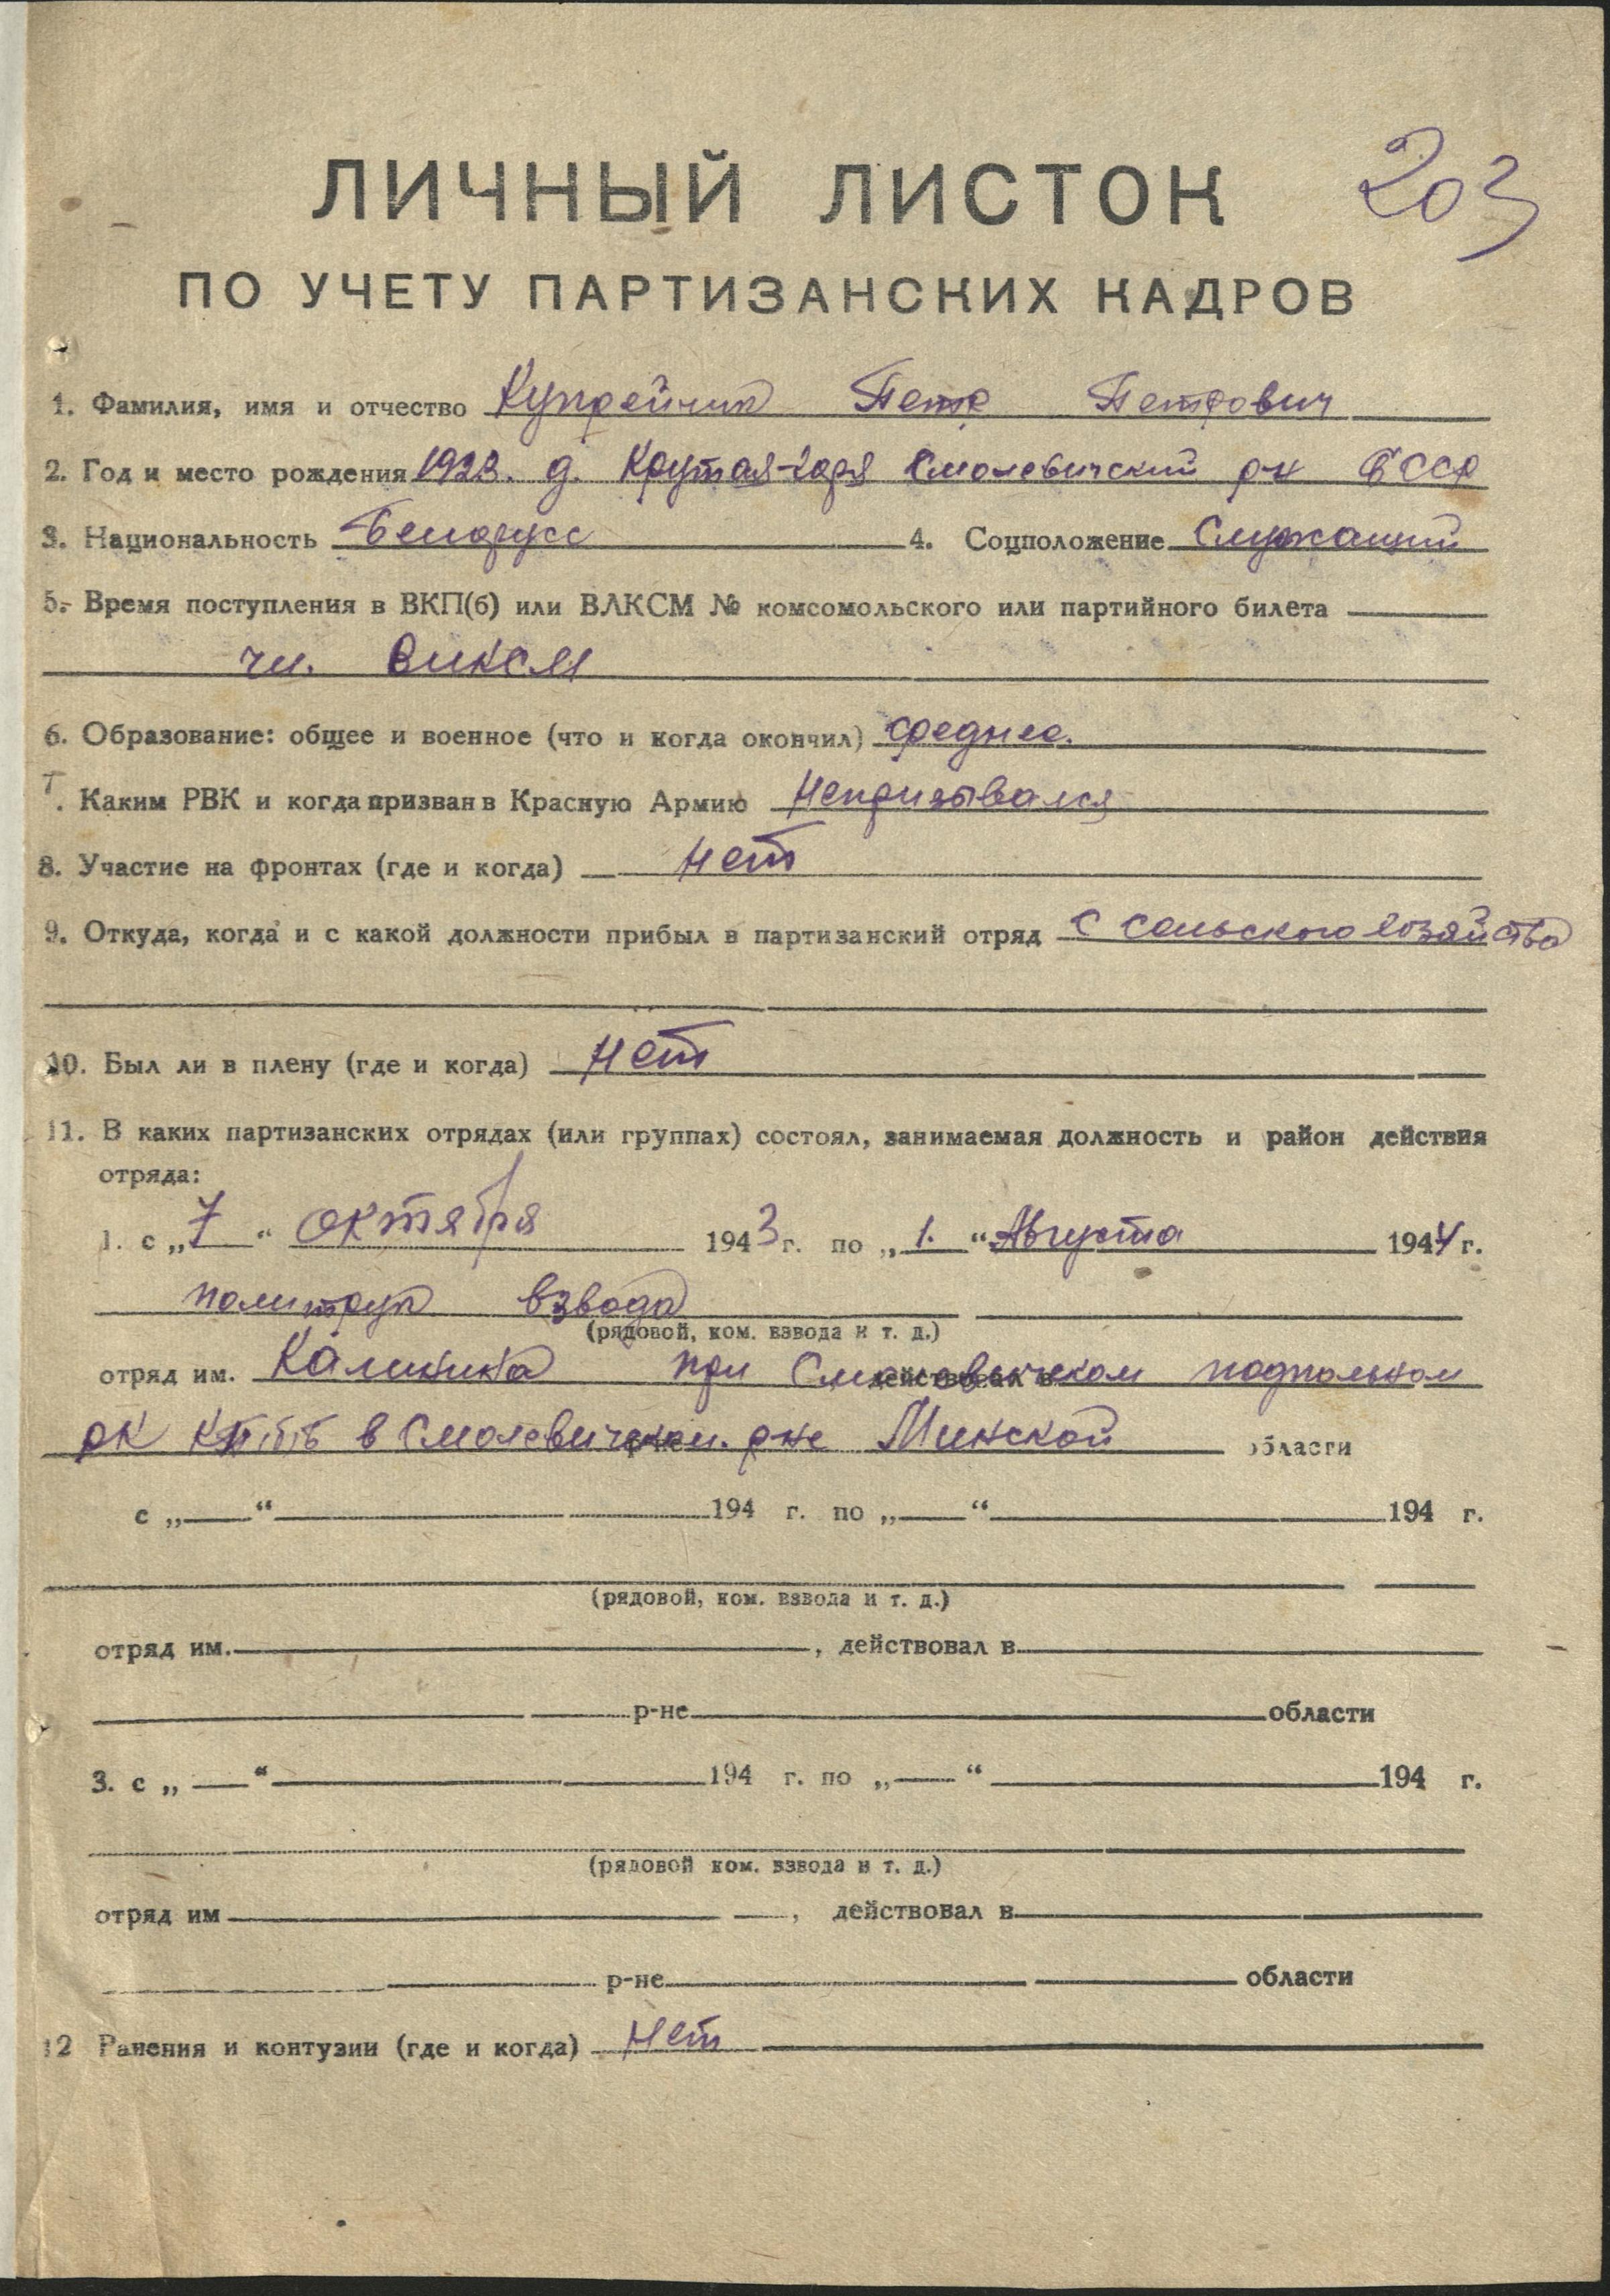 203
ЛИЧНЫЙ ЛИСТОК
ПО УЧЕТУ ПАРТИЗАНСКИХ КАДРОВ
1. Фамилия, имя и отчество Купрейчик Петр Петрович
2. Год и место рождения 1923. д. Крутая-гора Смолевичский р-н БССР
3. Национальность Белорусс 4. Соцположение Служащий
5. Время поступления в ВКП(б) или ВЛКСМ № комсомольского или партийного билета
чл. ВЛКСМ
6. Образование: общее и военное (что и когда окончил) среднее.
7. Каким РВК и когда призван в Красную Армию Непризывался
8. Участие на фронтах (где и когда) нет
9. Откуда, когда и с какой должности прибыл в партизанский отряд с сельского хозяйства
10. Был ли в плену (где и когда) нет
11. В каких партизанских отрядах (или группах) состоял, занимаемая должность и район действия
отряда:
1. с „7“ октября 1943 г. по „1.“ Августа 1944 г.
политрук взвода
(рядовой, ком. взвода и т. д.)
отряд им. Калинина при Смолевичском подпольном
РК КП(б)Б в Смолевичском. р-не Минской области
с „ “ 194 г. по „ “ 194 г.
(рядовой, ком. взвода и т. д.)
отряд им. , действовал в
р-не области
3. с „ “ 194 г. по „ “ 194 г.
(рядовой ком. взвода и т. д.)
отряд им , действовал в
р-не области
12 Ранения и контузии (где и когда) нет